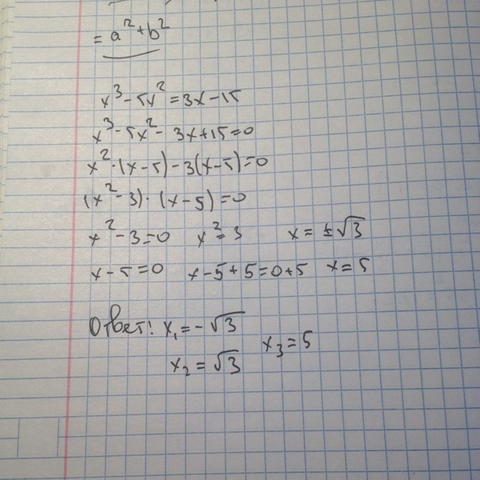 = a²+b²
x³-5x²=3x-15
x³-5x²-3x+15=0
x²·(x-5)-3(x-5)=0
(x²-3)·(x-5)=0
x²-3=0 x²=3 x=±√3
x-5=0 x-5+5=0+5 x=5
Ответ: x₁=-√3
x₂=√3 x₃=5